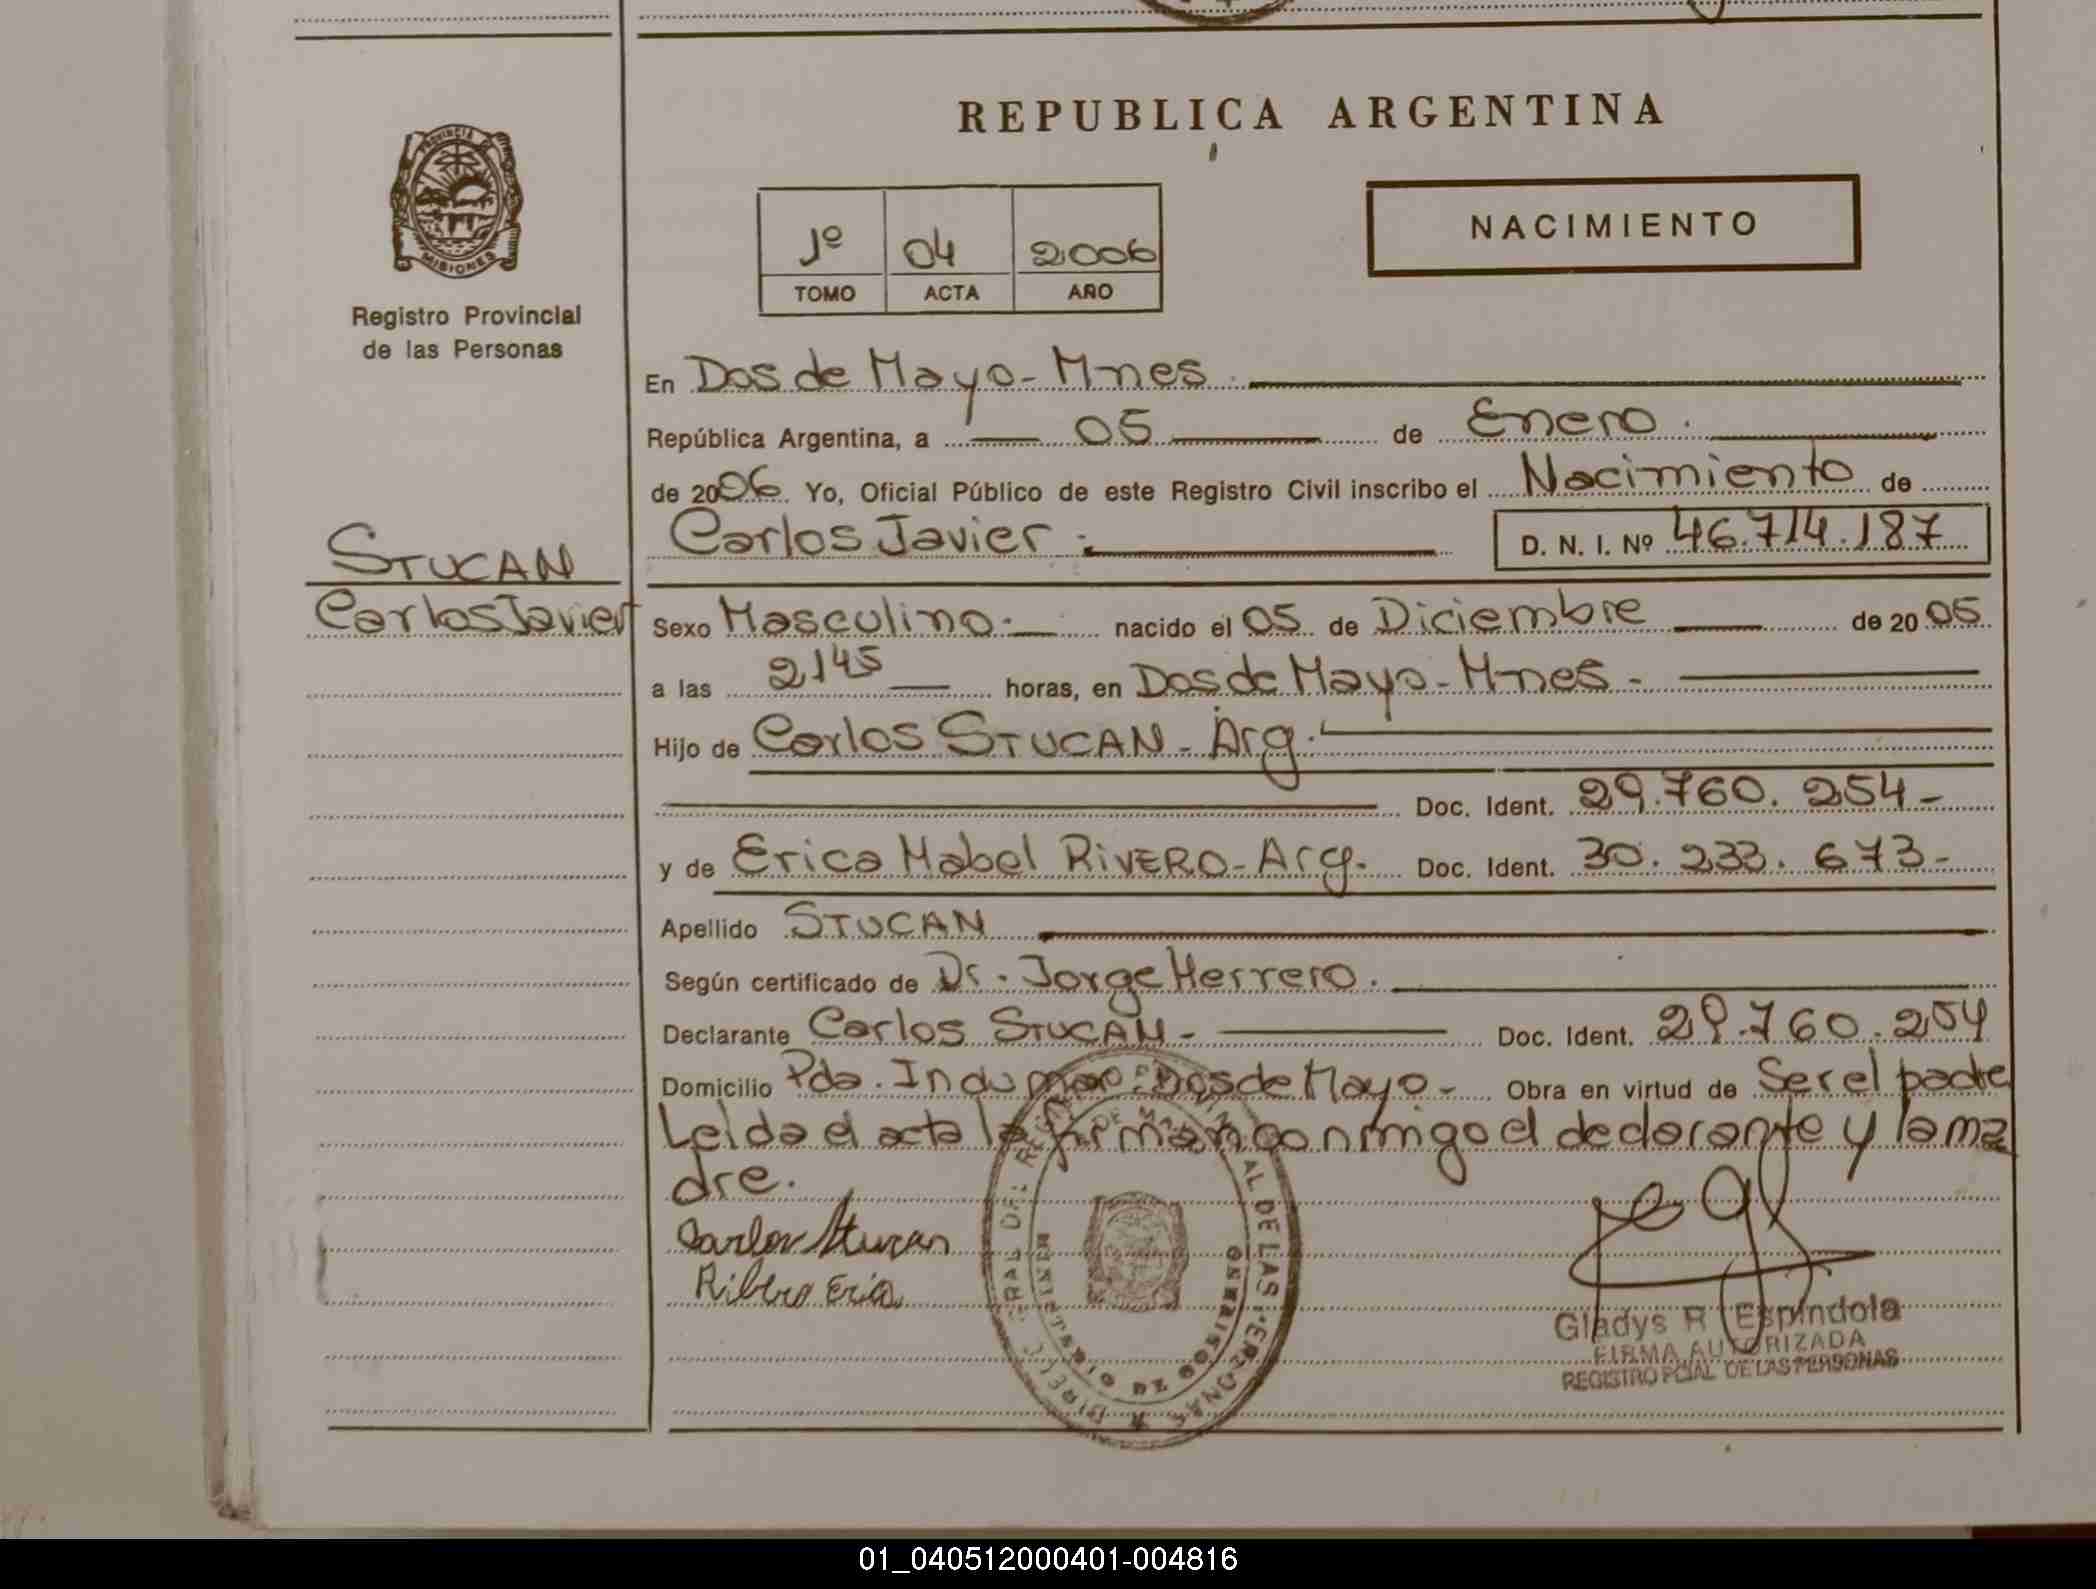 REPUBLICA ARGENTINA
PROVINCIA DE MISIONES
Registro Provincial
de las Personas
Jº 04 2006
TOMO ACTA AÑO
NACIMIENTO
En Dos de Mayo - Mnes.
República Argentina, a 05 de Enero.
de 2006. Yo, Oficial Público de este Registro Civil inscribo el Nacimiento de
Carlos Javier. D. N. I. Nº 46.714.187
STUCAN
Carlos Javier
Sexo Masculino. nacido el 05 de Diciembre de 2005
a las 2145 horas, en Dos de Mayo - Mnes.
Hijo de Carlos STUCAN - Arg.
Doc. Ident. 29.760.254-
y de Erica Mabel RIVERO - Arg. Doc. Ident. 30.233.673-
Apellido STUCAN
Según certificado de Dr. Jorge Herrero.
Declarante Carlos STUCAN - Doc. Ident. 29.760.254
Domicilio Pda. Indumar Dos de Mayo - Obra en virtud de Ser el padre
Leida el acta la firman conmigo el declarante y la ma
dre.
Carlos Stucan
Ribero Erica
MINISTERIO DE GOBIERNO
Gladys R Espindola
FIRMA AUTORIZADA
REGISTRO PCIAL DE LAS PERSONAS
01_040512000401-004816